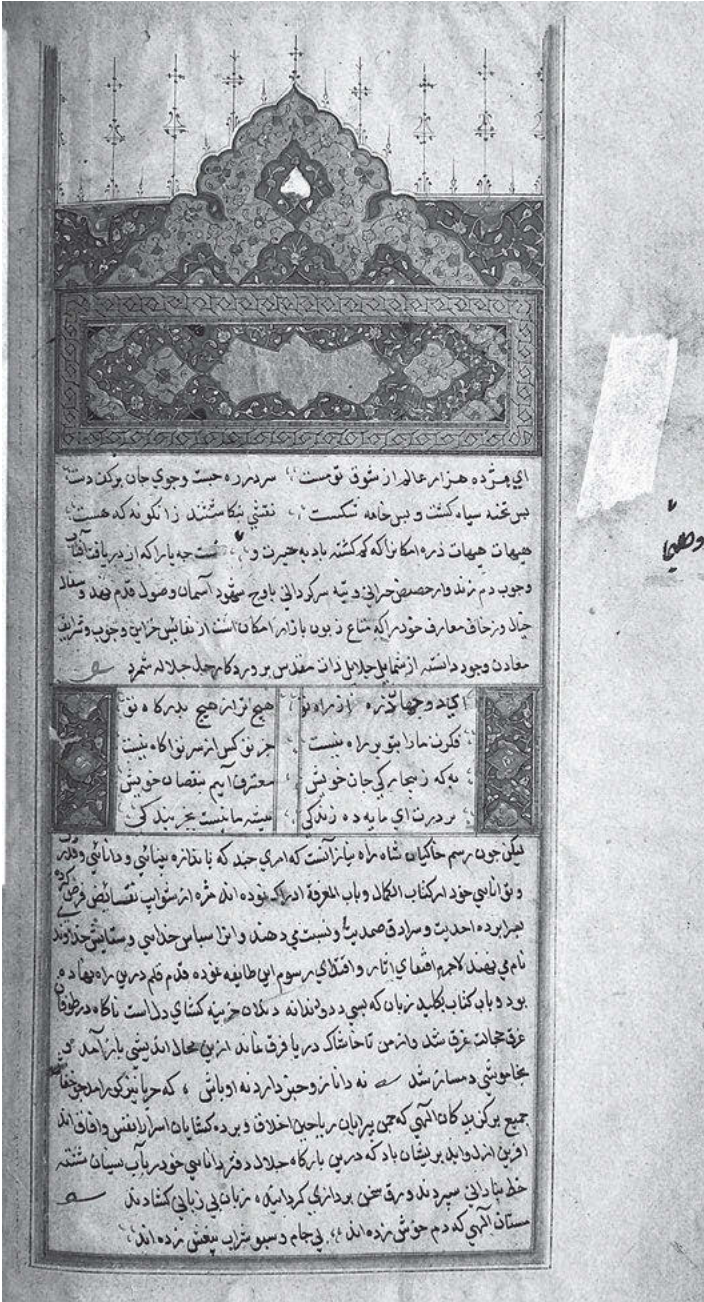 ای هژده هزار عالم از شوق تو مست سر در ره جست و جوی جان بر کف دست
بس تخته سیاه کشت و بس خامه شکست نقشی ننکاشتند زانکونه که هست
هیهات هیهات ذره امکانرا که کم کشته بادیه حیرت و جه یارا که از دریافت آفتاب
وجوب دم زند و از حضیض حیرانی و تیه سرکردانی باوج شهود آسمان وصول قدم نهد و سفال
خیال و زخاف معارف خود را که متاع زبون بازار امکان است از نفائس خزاین وجوب و شرایف
معادن وجود دانسته از شمایل جلایل ذات مقدس پروردکار جل جلاله شمرد
ای دو جهان ذره از راه تو هیچ تر از هیچ بدرکاه تو
فکرت ما را بتو بر راه نیست جز تو کس از سر تو آکاه نیست
به که ز بیچارکی جان خویش معترف آییم بنقصان خویش
بر درت ای مایه ده زندکی نیست مکنید بجز بندکی
لیکن چون رسم خاکیان شاه راه نیاز آنست که امری چند که باندازه بینائی و دانائی و قدرت
و توانایی خود از کتاب الکمال و باب المعرفة ادراک نموده اند منزه از شوایب نقائص فرض کرده
احدیت و سرادق صمدیت نسبت می دهند و انرا سپاس خدایی و ستایش خداوند
نام می نهند لاجرم اقتفای اثار و اقتدای رسوم این طایفه نموده قدم قلم درین راه نهاده
بود و باب کتاب بکلید زبان که بسی و دو دندانه دندان خزینه کشای دل است ناکاه در طوفان
عرق خجالت غرق شد و از من تا خاشاک دریا فرق نماند ازین محال اندیشی باز آمد و
بخاموشی دمساز شد نه دانا زو خبر دارد نه اوباش که حربا نیز کور آمد
جمیع برکزیدکان الهی که چمن پیرایان ریاحین اخلاق و پرده کشایان اسرار انفس و افاق اند
افرین ازل و ابد بریشان باد که درین بارکاه جلال دفتر دانایی خود بآب نسیان شسته
خط بنادانی سپردند و ورق سخن پردازی کردانیده زبان بی زبانی کشادند
مستان الهی که دم خوش زده اند بی جام و سبو شراب بیغش زده اند